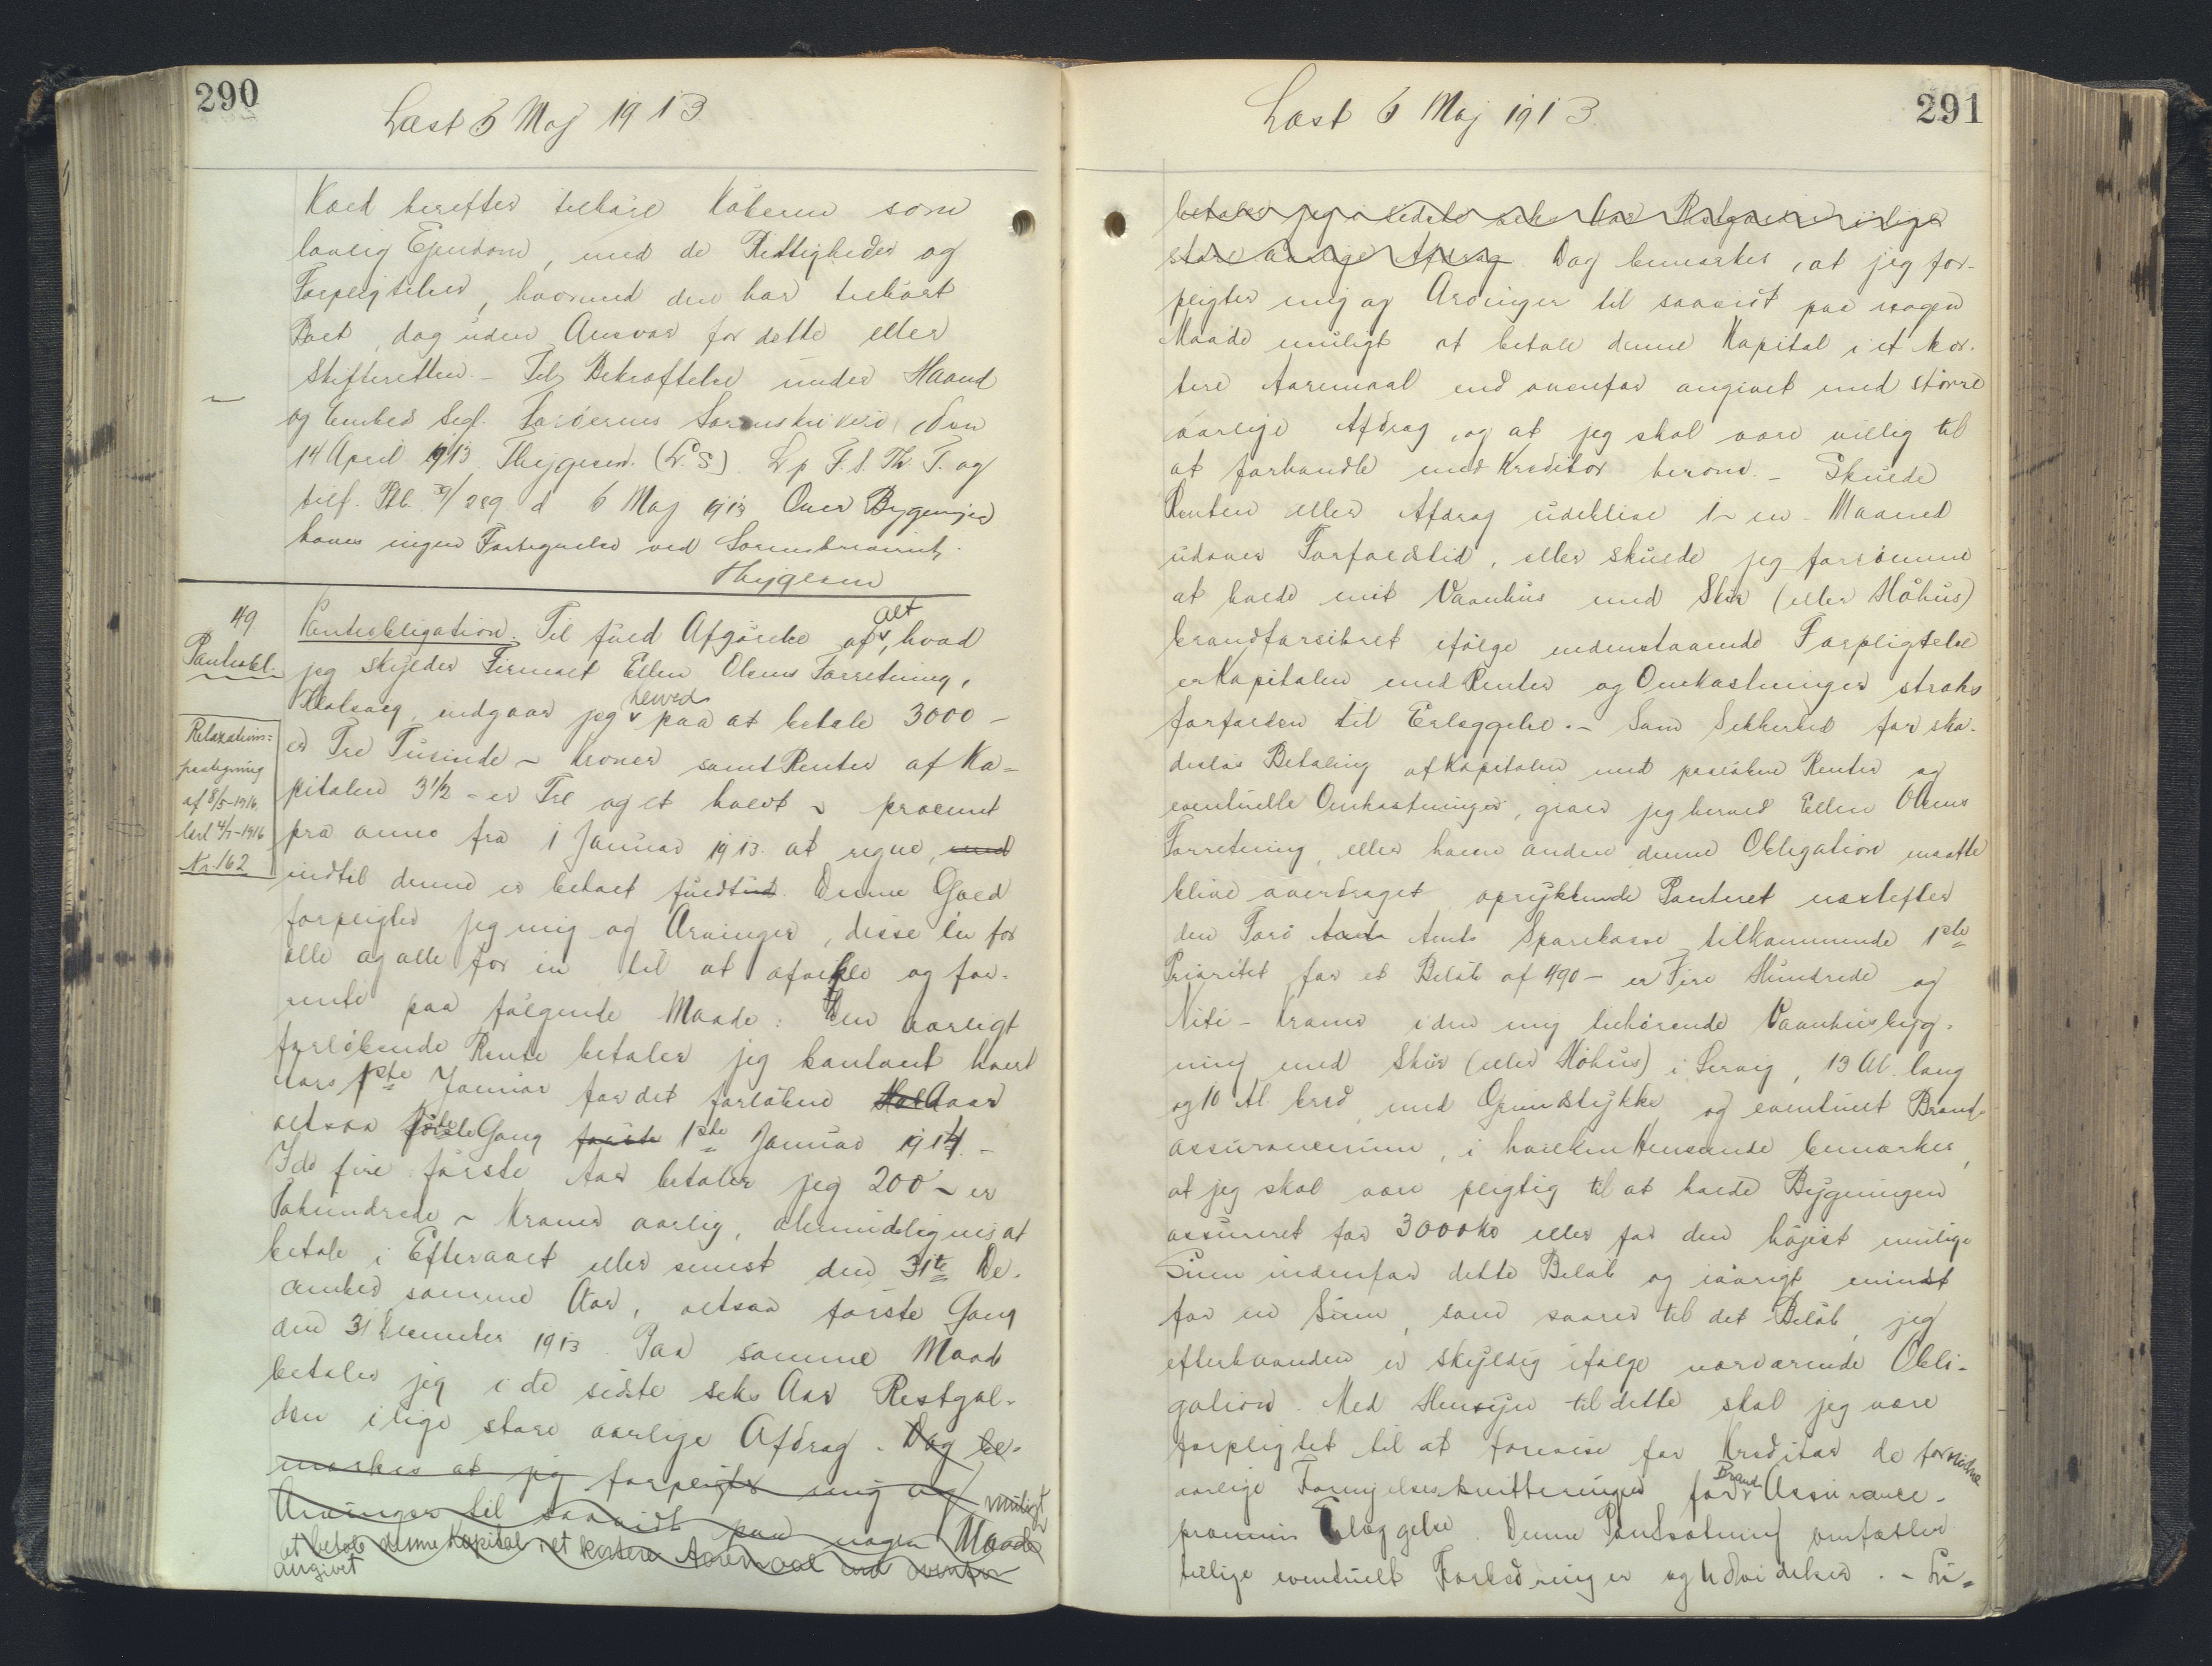 290
Læst 6 Maj 1913
Kaed herefter tilhøre Køberen som
lovlig Ejendom, med de Rettigheder og
Forpligtelser, hvormed den har tilhørt
Boet, dog uden Ansvar for dette eller
Skifteretten. - Til Bekræftelse under Haand
og Embeds Segl. Færøernes Sorenskriveri, den
14 April 1913 Thygesen. (L. S.) L p F. S. Th T. og
tilf. Ptb. 289 d 6 Maj 1913 Over Bygninger
haves ingen Fortegnelse ved Sorenskriveriet.
Thygesen
49
Panteobl.
Relaxations=
paategning
af 8/5-1916
læst 4/7-1916
Nr. 162
Panteobligation. Til fuld Afgørelse af alt, hvad
jeg skylder Firmaet Ellen Olsens Forretning,
indgaar jeg herved paa at betale 3000 -
er Tre Tusinde - Kroner samt Renter af Ka=
pitalen 3 1/2 - er Tre og et halvt - procent
pro anno fra 1 Januar 1913 at regne, med
indtil denne er betalt fuldtud. Denne Gæld
forpligter jeg mig og Arvinger, disse én for
alle og alle for én til at afvikle og for-
rente paa følgende Maade: Den aarligt
forløbende Rente betaler jeg kontant hvert
Aars 1ste Januar for det forløbne Halvaar
altsaa første Gang første 1ste Januar 1914. -
I de fire første Aar betaler jeg 200 - er
Tohundrede - Kroner aarlig, almindeligvis at
betale i Efteraaret eller senest den 31te De-
cember samme Aar, altsaa første Gang
den 31 December 1913. Paa samme Maade
betaler jeg i de sidste seks Aar Restgæl-
den i lige store aarlige Afdrag. Dog be-
mærkes at jeg forpligter mig og
Arvinger til saavidt paa nogen Maade muligt
at betale denne Kapital i et kortere Aaremaal end ovenfor
angivet
291
Læst 6 Maj 1913
betaler jeg i sidste seks Aar Restgælden i lige
store aarlige Afdrag. Dog bemærkes, at jeg for-
pligter mig og Arvinger til saavidt paa nogen
Maade muligt at betale denne Kapital i et kor-
tere Aaremaal end ovenfor angivet med større
aarlige Afdrag, og at jeg skal være villig til
at forhandle med Kreditor herom. - Skulde
Renten eller Afdrag udeblive 1 - en - Maaned
udover Forfaldstid, eller skulde jeg forsømme
at holde mit Vaanhus med Skur (eller Høhus)
brandforsikret ifølge nedenstaaende Forpligtelse
er Kapitalen med Renter og Omkostninger straks
forfalden til Erlæggelse. - Som Sikkerhed for ska-
desløs Betaling af Kapitalen med paaløbne Renter og
eventuelle Omkostninger, giver jeg herved Ellen Olsens
Forretning, eller hvem anden denne Obligation maatte
blive overdraget oprykkende Panteret næstefter
den Færø Amts Sparekasse tilkommende 1ste
Prioritet for et Beløb af 490 - er Fire Hundrede og
Niti - Kroner i den mig tilhørende Vaanhusbyg-
ning med Skur (eller Høhus) i Servig, 13 Al. lang
og 10 Al. bred, med Grundstykke og eventuelt Brand-
assurancesum, i hvilken Henseende bemærkes,
at jeg skal være pligtig til at holde Bygningen
assureret for 3000 Kr eller for den højest mulige
Sum indenfor dette Beløb og iøvrigt mindst
for en Sum, som svarer til det Beløb, jeg
efterhaanden er skyldig ifølge nærværende Obli-
gation. Med Hensyn til dette skal jeg være
forpligtet til at forevise for Kreditor de fornødne
aarlige Fornyelseskvitteringer for Brand Assurance-
præmiens Erlæggelse. Denne Pantsætning omfatter
tillige eventuelt Forbedringer og Udvidelser. - Li=